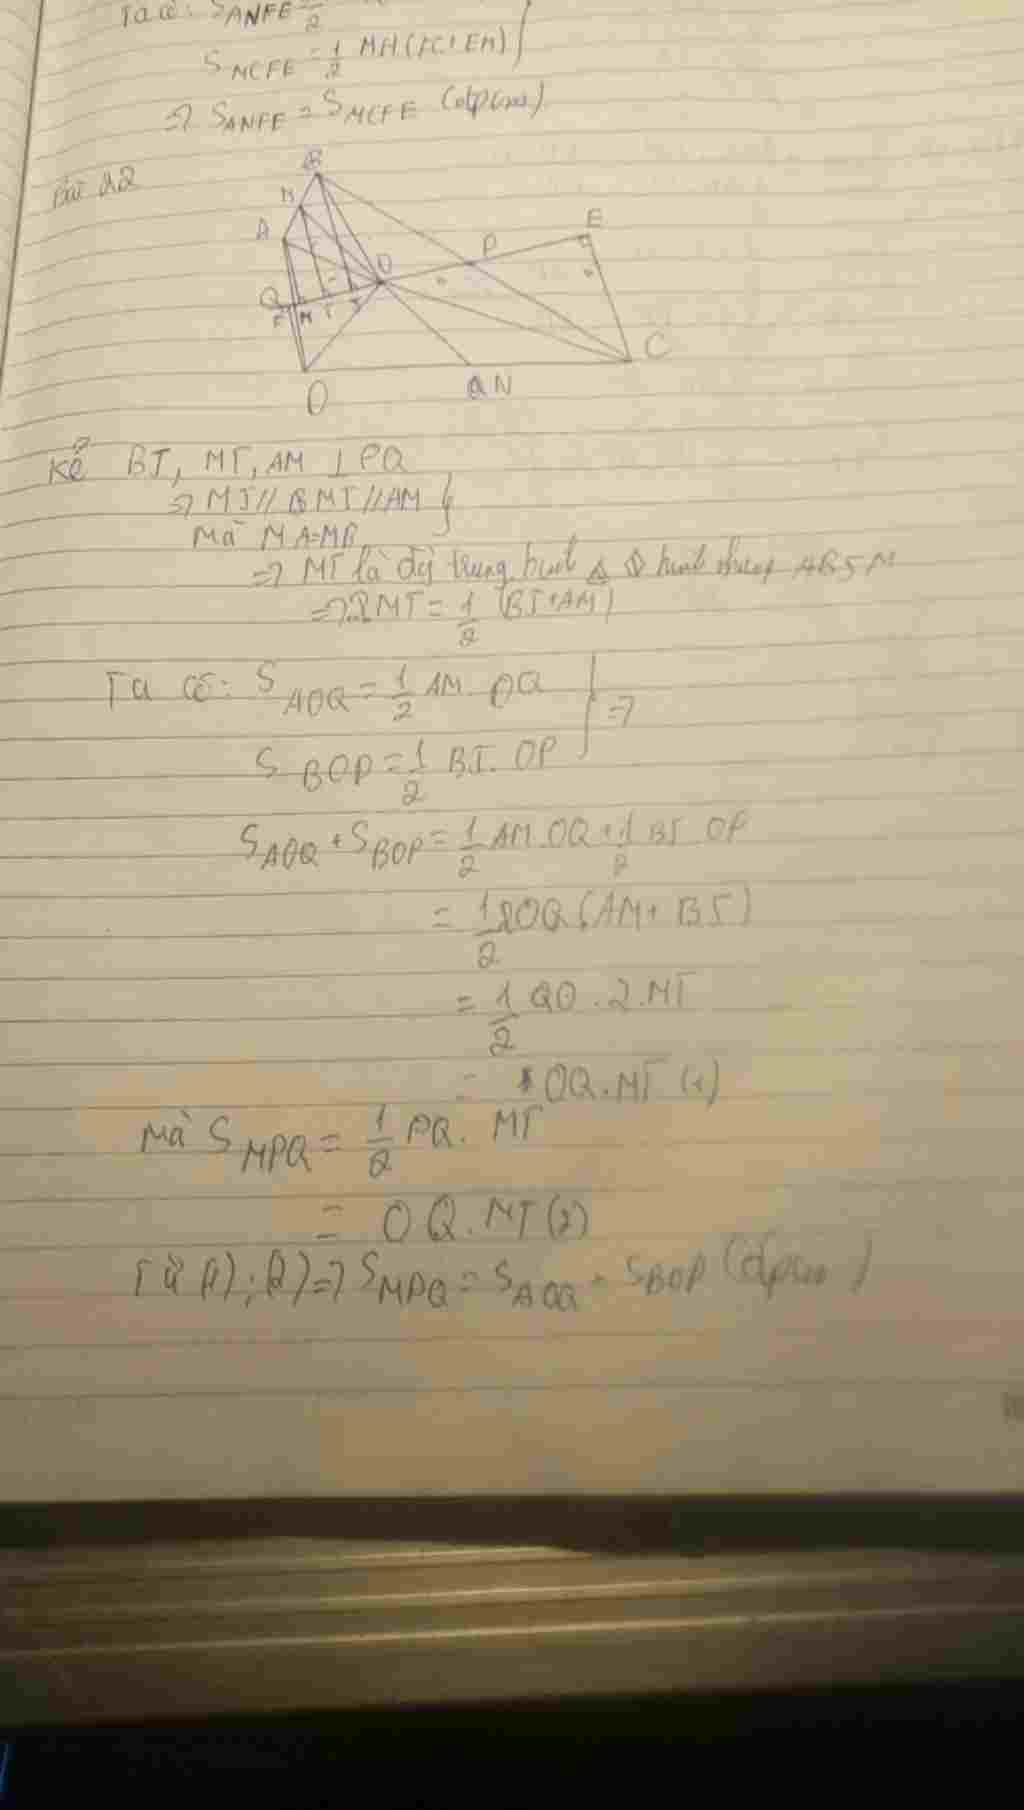 Ta có: S ANFE = 1/2
S MCFE = 1/2 MH(FC+EM)
=> S ANFE = S MCFE (đpcm)
Bài 22
B
M
A
E
P
O
Q
F M T J
C
D
N
Kẻ BJ, MT, AM ⊥ PQ
=> MJ // B MT // AM
Mà MA=MB
=> MT là đg trung bình hình thang ABJM
=> MT = 1/2 (BJ+AM)
Ta có: S AOQ = 1/2 AM. OQ
=>
S BOP = 1/2 BJ. OP
S AOQ + S BOP = 1/2 AM.OQ + 1/2 BJ OP
= 1/2 OQ (AM + BJ)
= 1/2 QO . 2.MT
= OQ.MT (1)
Mà S MPQ = 1/2 PQ. MT
= OQ.MT (2)
Từ (1);(2) => S MPQ = S AOQ + S BOP (đpcm)